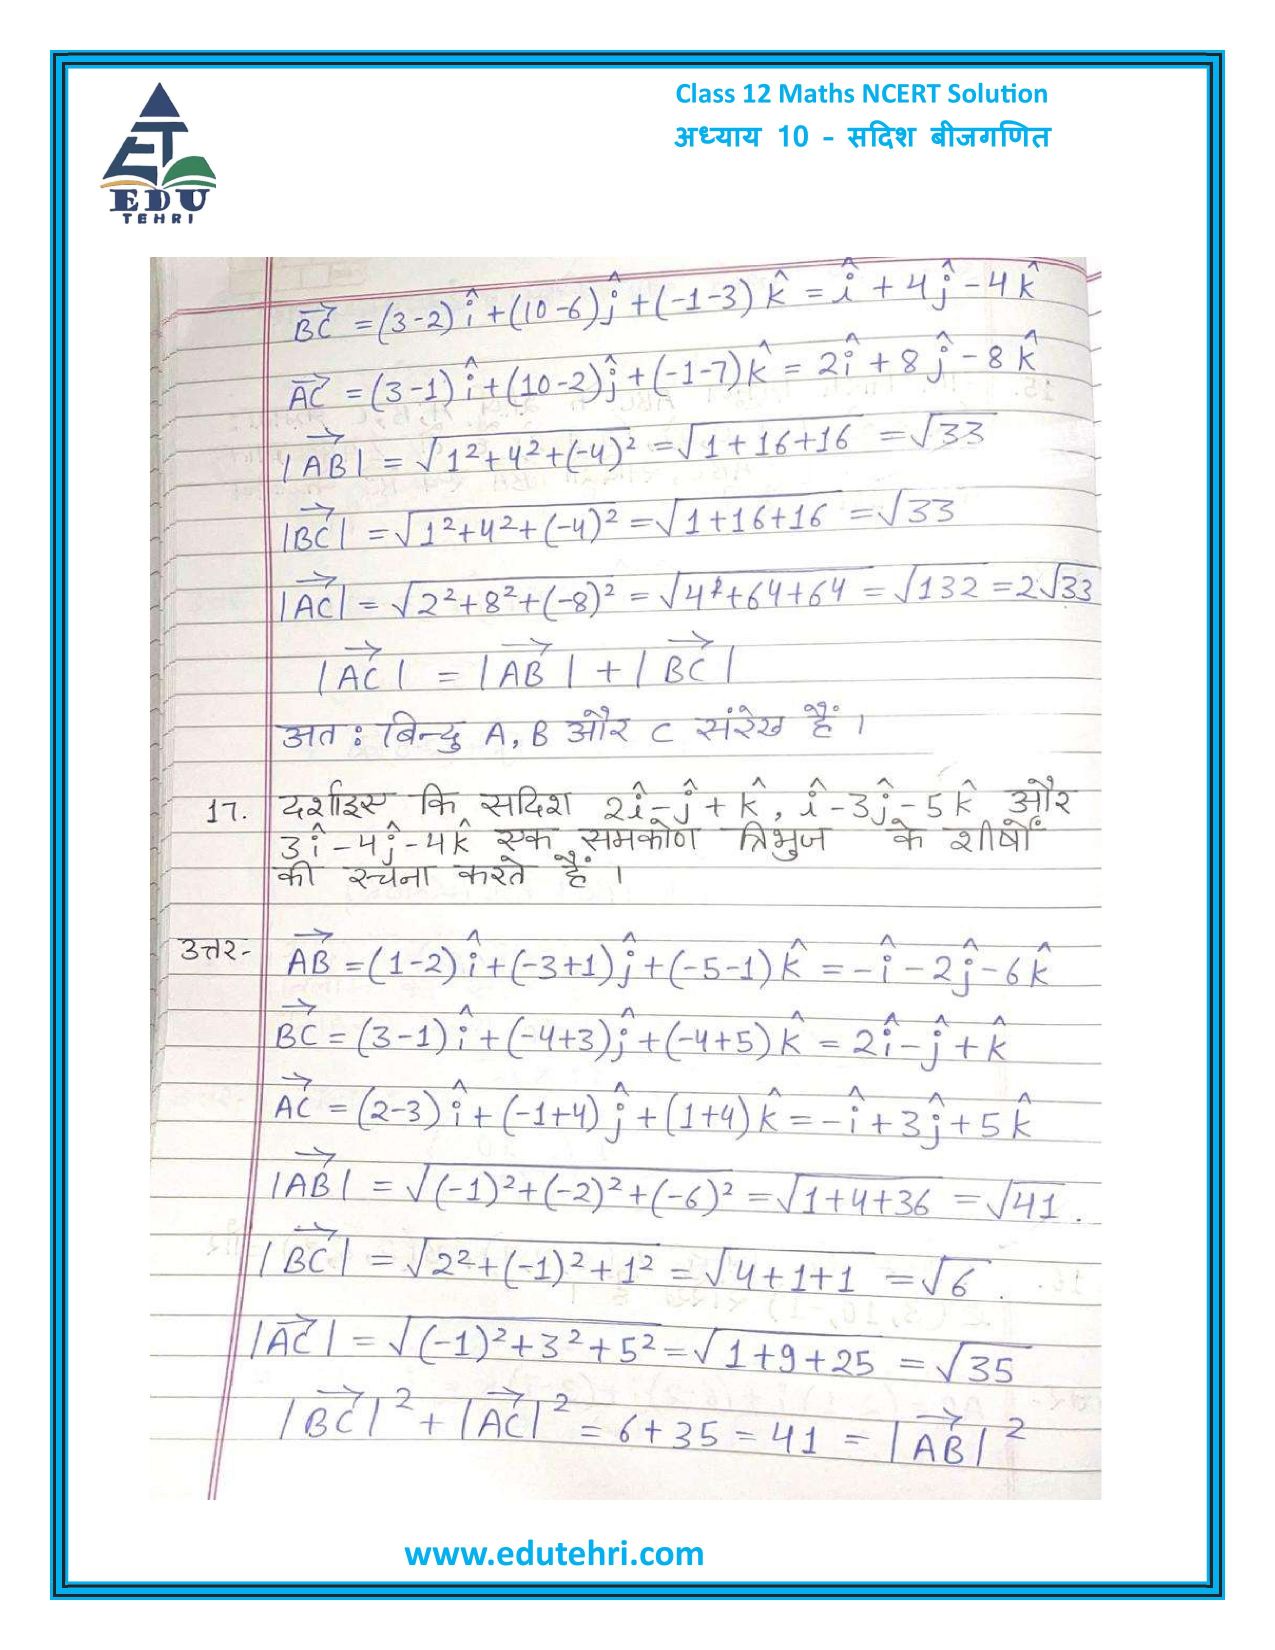 Class 12 Maths NCERT Solution
अध्याय 10 - सदिश बीजगणित
EDU
TEHRI
BC⃗ = (3-2)î+(10-6)ĵ+(-1-3)k̂ = î+4ĵ-4k̂
AC⃗ = (3-1)î+(10-2)ĵ+(-1-7)k̂ = 2î+8ĵ-8k̂
|AB⃗| = √1²+4²+(-4)² = √1+16+16 = √33
|BC⃗| = √1²+4²+(-4)² = √1+16+16 = √33
|AC⃗| = √2²+8²+(-8)² = √4+64+64 = √132 = 2√33
|AC⃗| = |AB⃗| + |BC⃗|
अतः बिन्दु A, B और C संरेख हैं।
17. दर्शाइए कि सदिश 2î-ĵ+k̂, î-3ĵ-5k̂ और
3î-4ĵ-4k̂ एक समकोण त्रिभुज के शीर्षों
की रचना करते हैं।
उत्तर- AB⃗ = (1-2)î+(-3+1)ĵ+(-5-1)k̂ = -î-2ĵ-6k̂
BC⃗ = (3-1)î+(-4+3)ĵ+(-4+5)k̂ = 2î-ĵ+k̂
AC⃗ = (2-3)î+(-1+4)ĵ+(1+4)k̂ = -î+3ĵ+5k̂
|AB⃗| = √(-1)²+(-2)²+(-6)² = √1+4+36 = √41.
|BC⃗| = √2²+(-1)²+1² = √4+1+1 = √6.
|AC⃗| = √(-1)²+3²+5² = √1+9+25 = √35
|BC⃗|²+|AC⃗|² = 6+35 = 41 = |AB⃗|²
www.edutehri.com